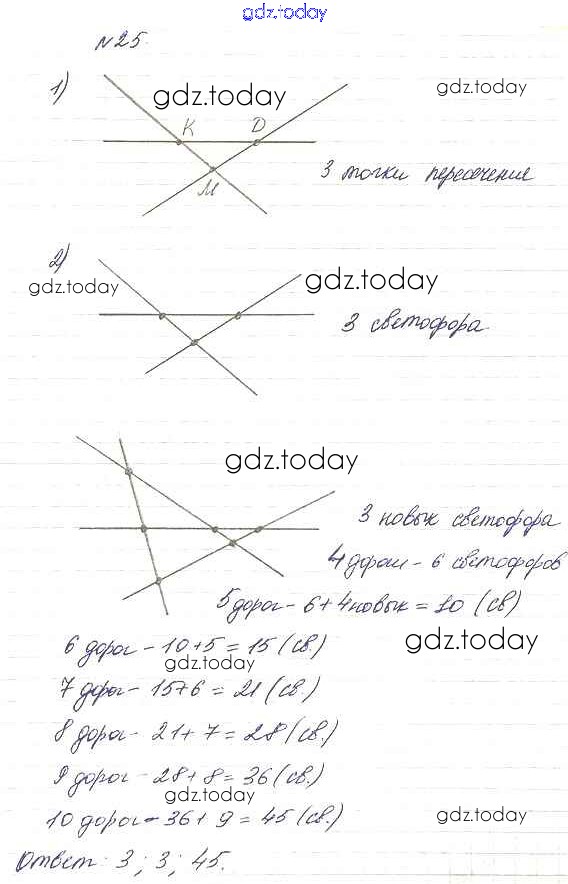 gdz.today
№25.
1)
gdz.today
gdz.today
К
D
М
3 точки пересечение
2)
gdz.today
gdz.today
3 светофора
gdz.today
3 новых светофора
4 дороги - 6 светофоров
5 дорог - 6 + 4 новых = 10 (св)
6 дорог - 10 + 5 = 15 (св.)
gdz.today
gdz.today
7 дорог - 15 + 6 = 21 (св.)
8 дорог - 21 + 7 = 28 (св.)
9 дорог - 28 + 8 = 36 (св.)
gdz.today
10 дорог - 36 + 9 = 45 (св.)
gdz.today
Ответ: 3; 3; 45.